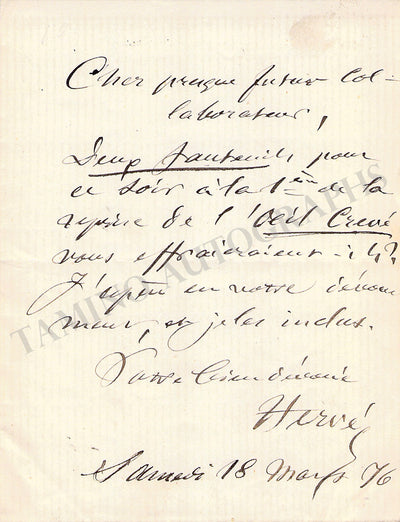 Cher presque futur col-
laborateur,
Deux fauteuils pour
ce soir à la 1ère de la
reprise de l'Oeil Crevé
vous effraieraient-ils?
J'espère en votre dévoue
ment, et je les
Votre bien dévoué
Hervé
Samedi 18 Mars 76
TAMINO AUTOGRAPHS